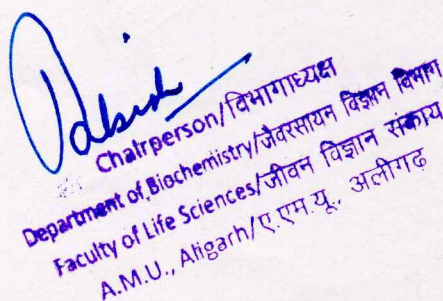 Chairperson/विभागाध्यक्ष
Department of Biochemistry/जैवरसायन विज्ञान विभाग
Faculty of Life Sciences/जीवन विज्ञान संकाय
A.M.U., Aligarh/ए.एम.यू., अलीगढ़